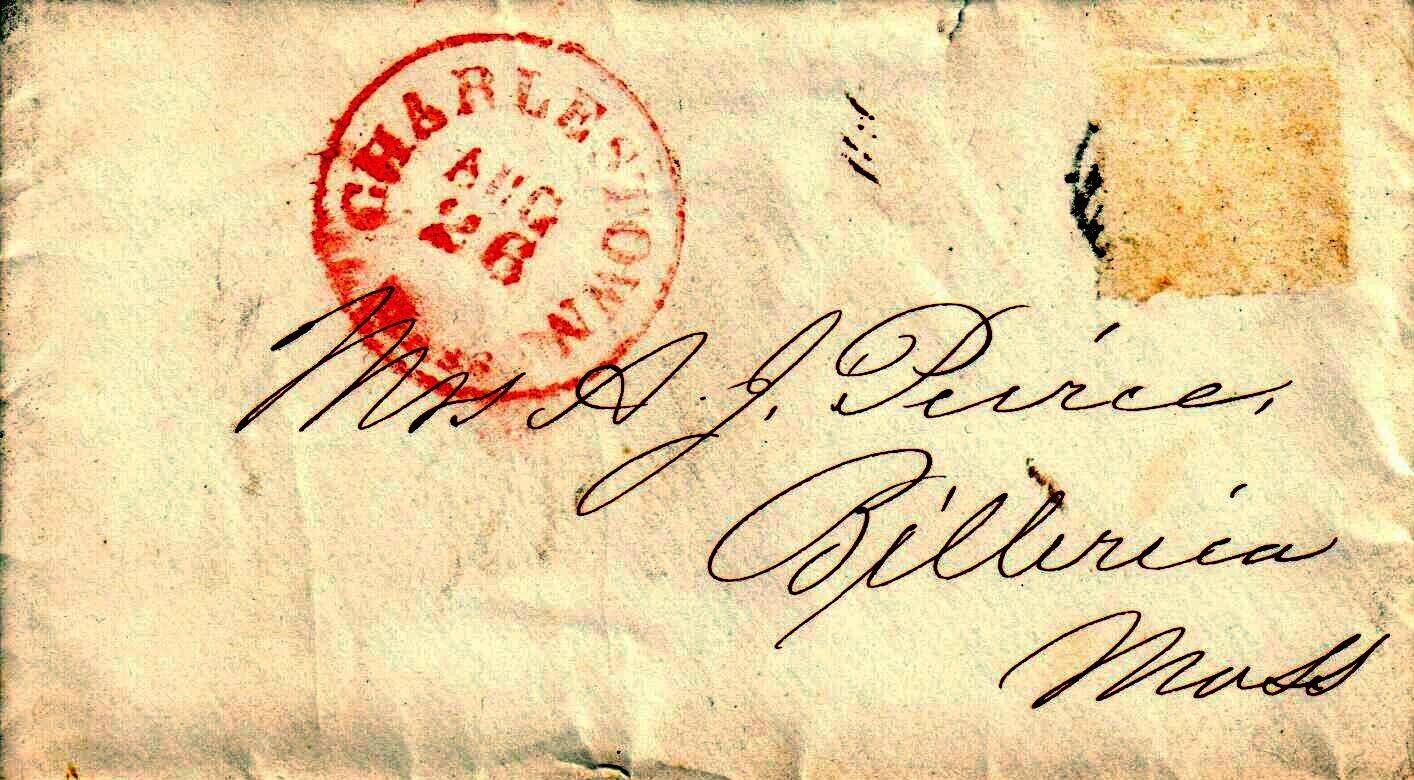 CHARLESTOWN
AUG
28
Mrs A. J. Peirce,
Billerica
Mass